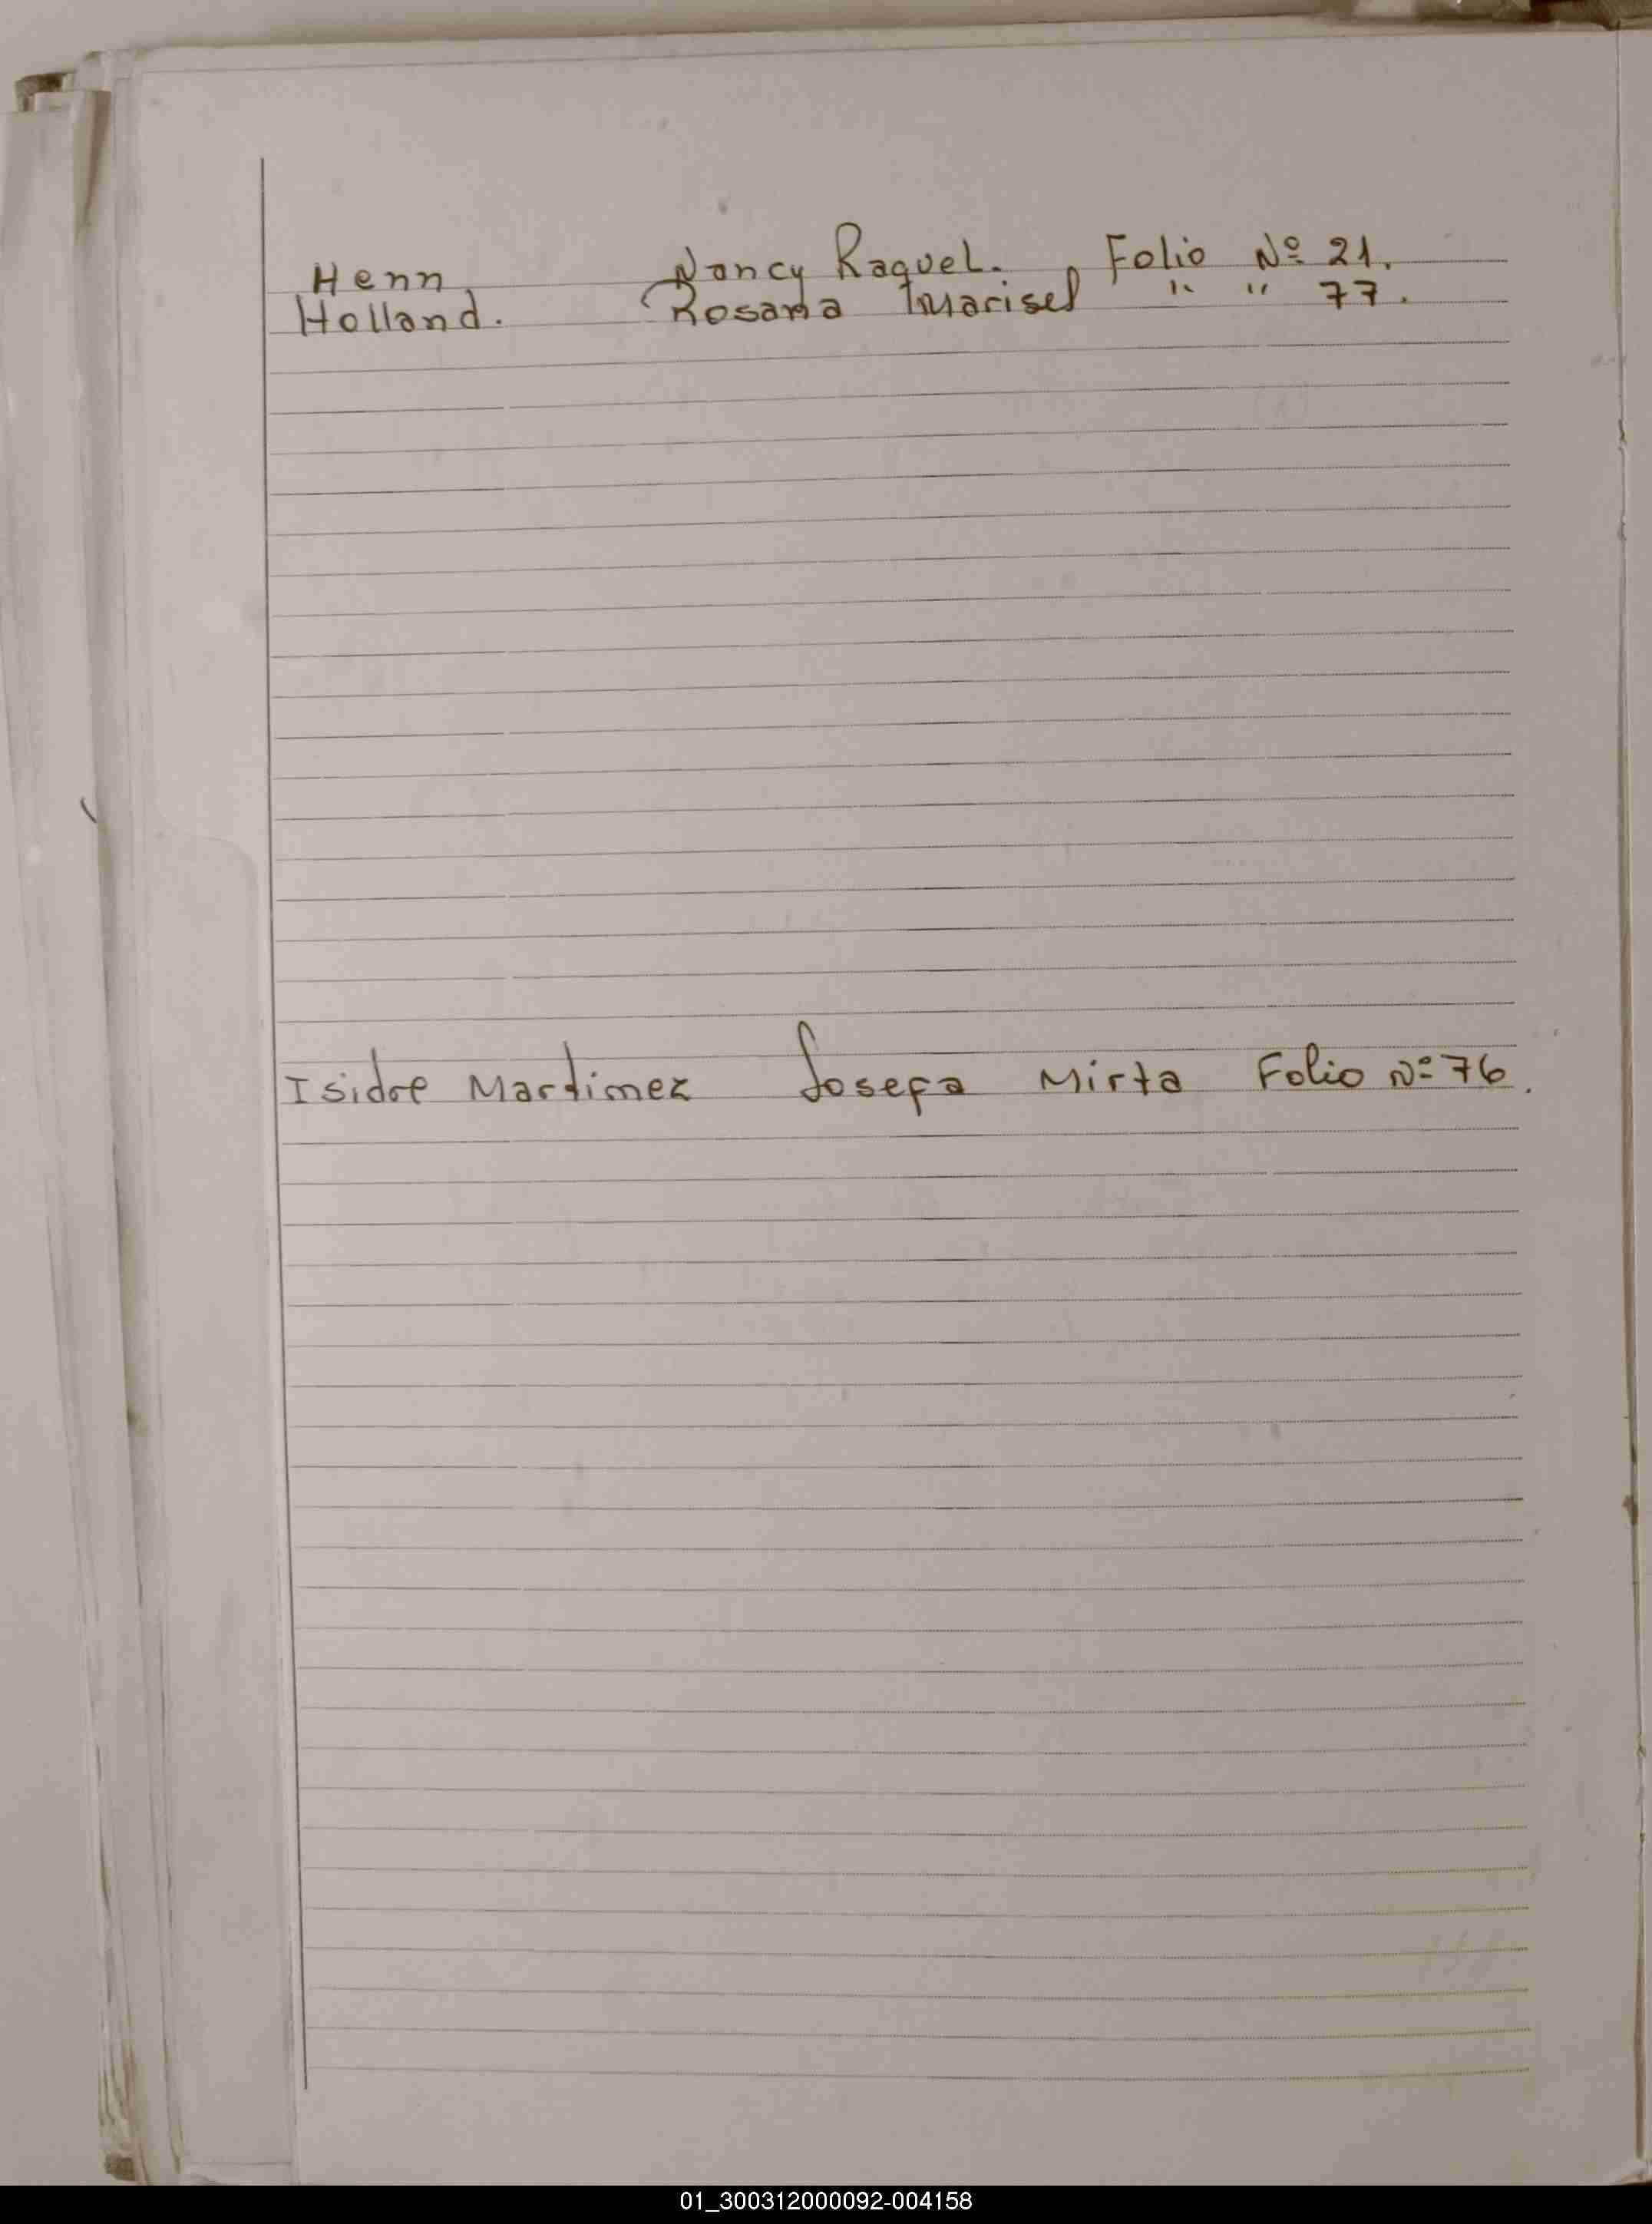 Henn Nancy Raquel. Folio Nº 21.
Holland. Rosana Marisel " " 77.
Isidre Martinez Josefa Mirta Folio Nº 76.
01_300312000092-004158